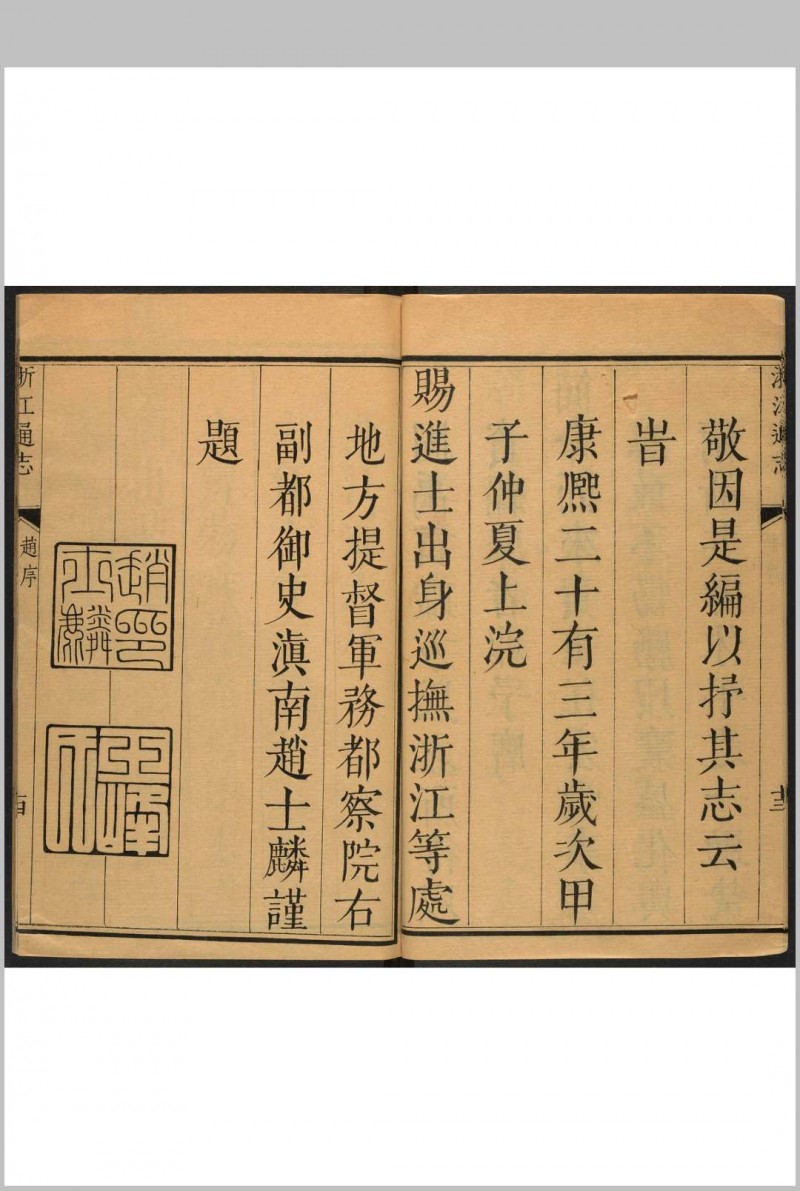 敬因是編以抒其志云
旹
康熙二十有三年歲次甲
子仲夏上浣
賜進士出身巡撫浙江等處
地方提督軍務都察院右
副都御史滇南趙士麟謹
題
浙江通志
趙序